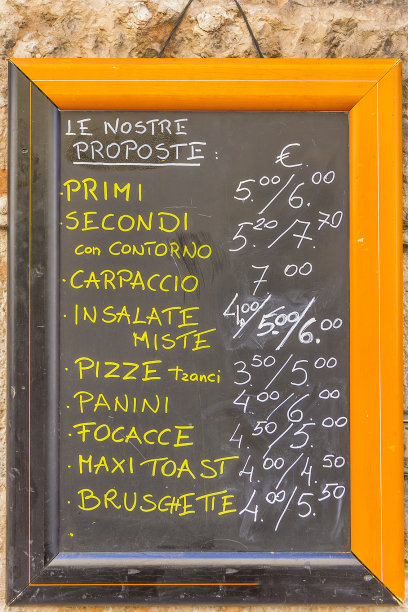 LE NOSTRE
PROPOSTE: €.
• PRIMI 5.00/6.00
• SECONDI
con CONTORNO 5.20/7.70
• CARPACCIO 7.00
• INSALATE 4.00/5.00/6.00
MISTE
• PIZZE tranci 3.50/5.00
• PANINI 4.00/6.00
• FOCACCE 4.50/5.00
• MAXI TOAST 4.00/4.50
• BRUSGHETTE 4.00/5.50
•